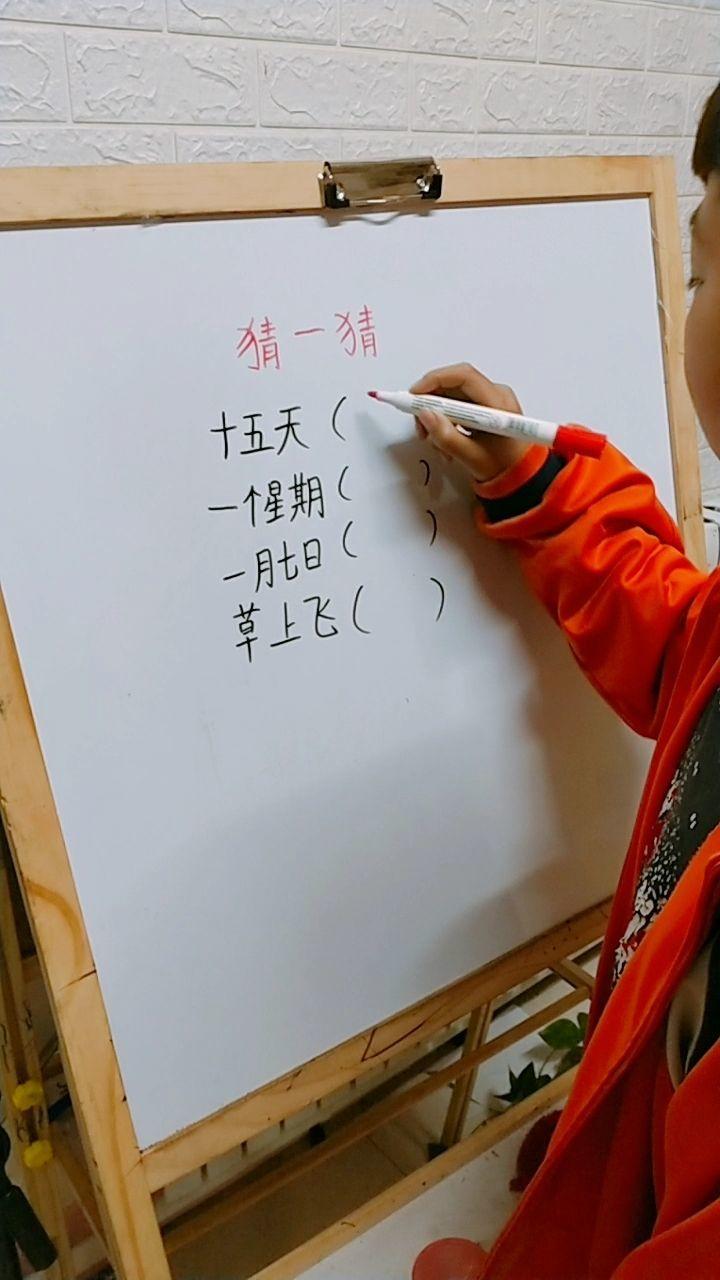 猜一猜
十五天（
一个星期（　　）
一月七日（　　）
草上飞（　　）